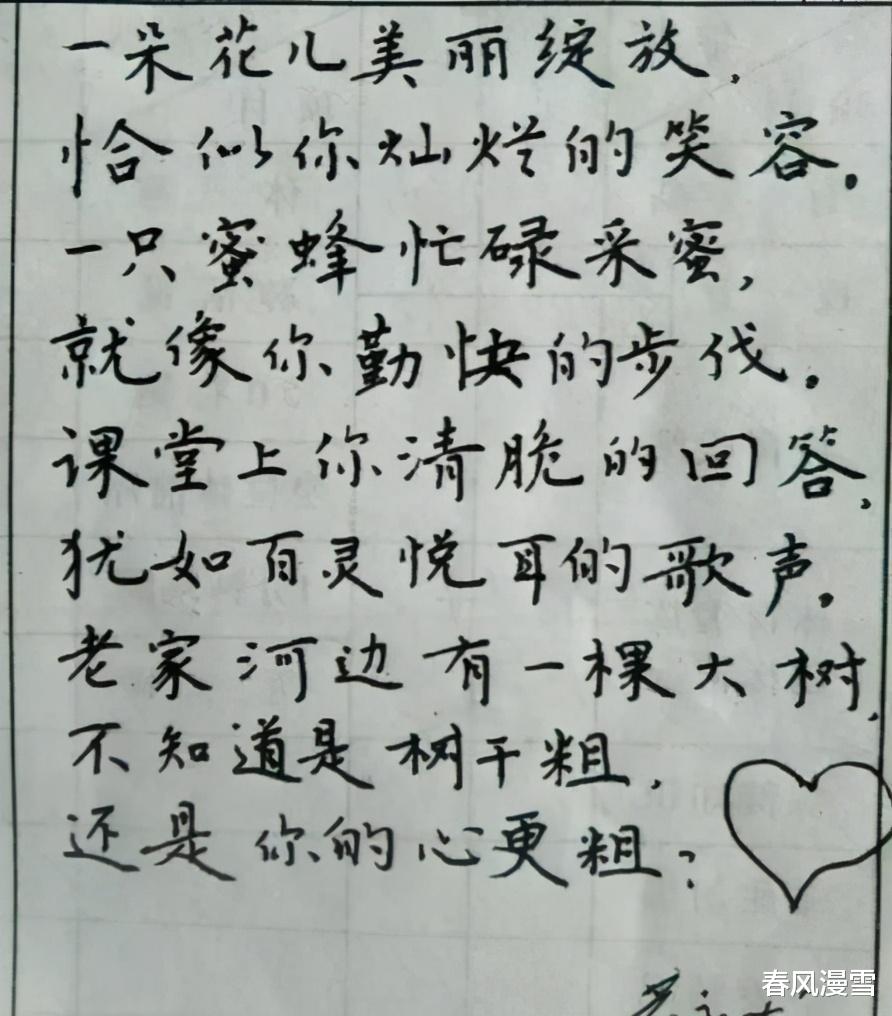 一朵花儿美丽绽放,
恰似你灿烂的笑容。
一只蜜蜂忙碌采蜜,
就像你勤快的步伐。
课堂上你清脆的回答,
犹如百灵悦耳的歌声。
老家河边有一棵大树,
不知道是树干粗,
还是你的心更粗?
春风漫雪